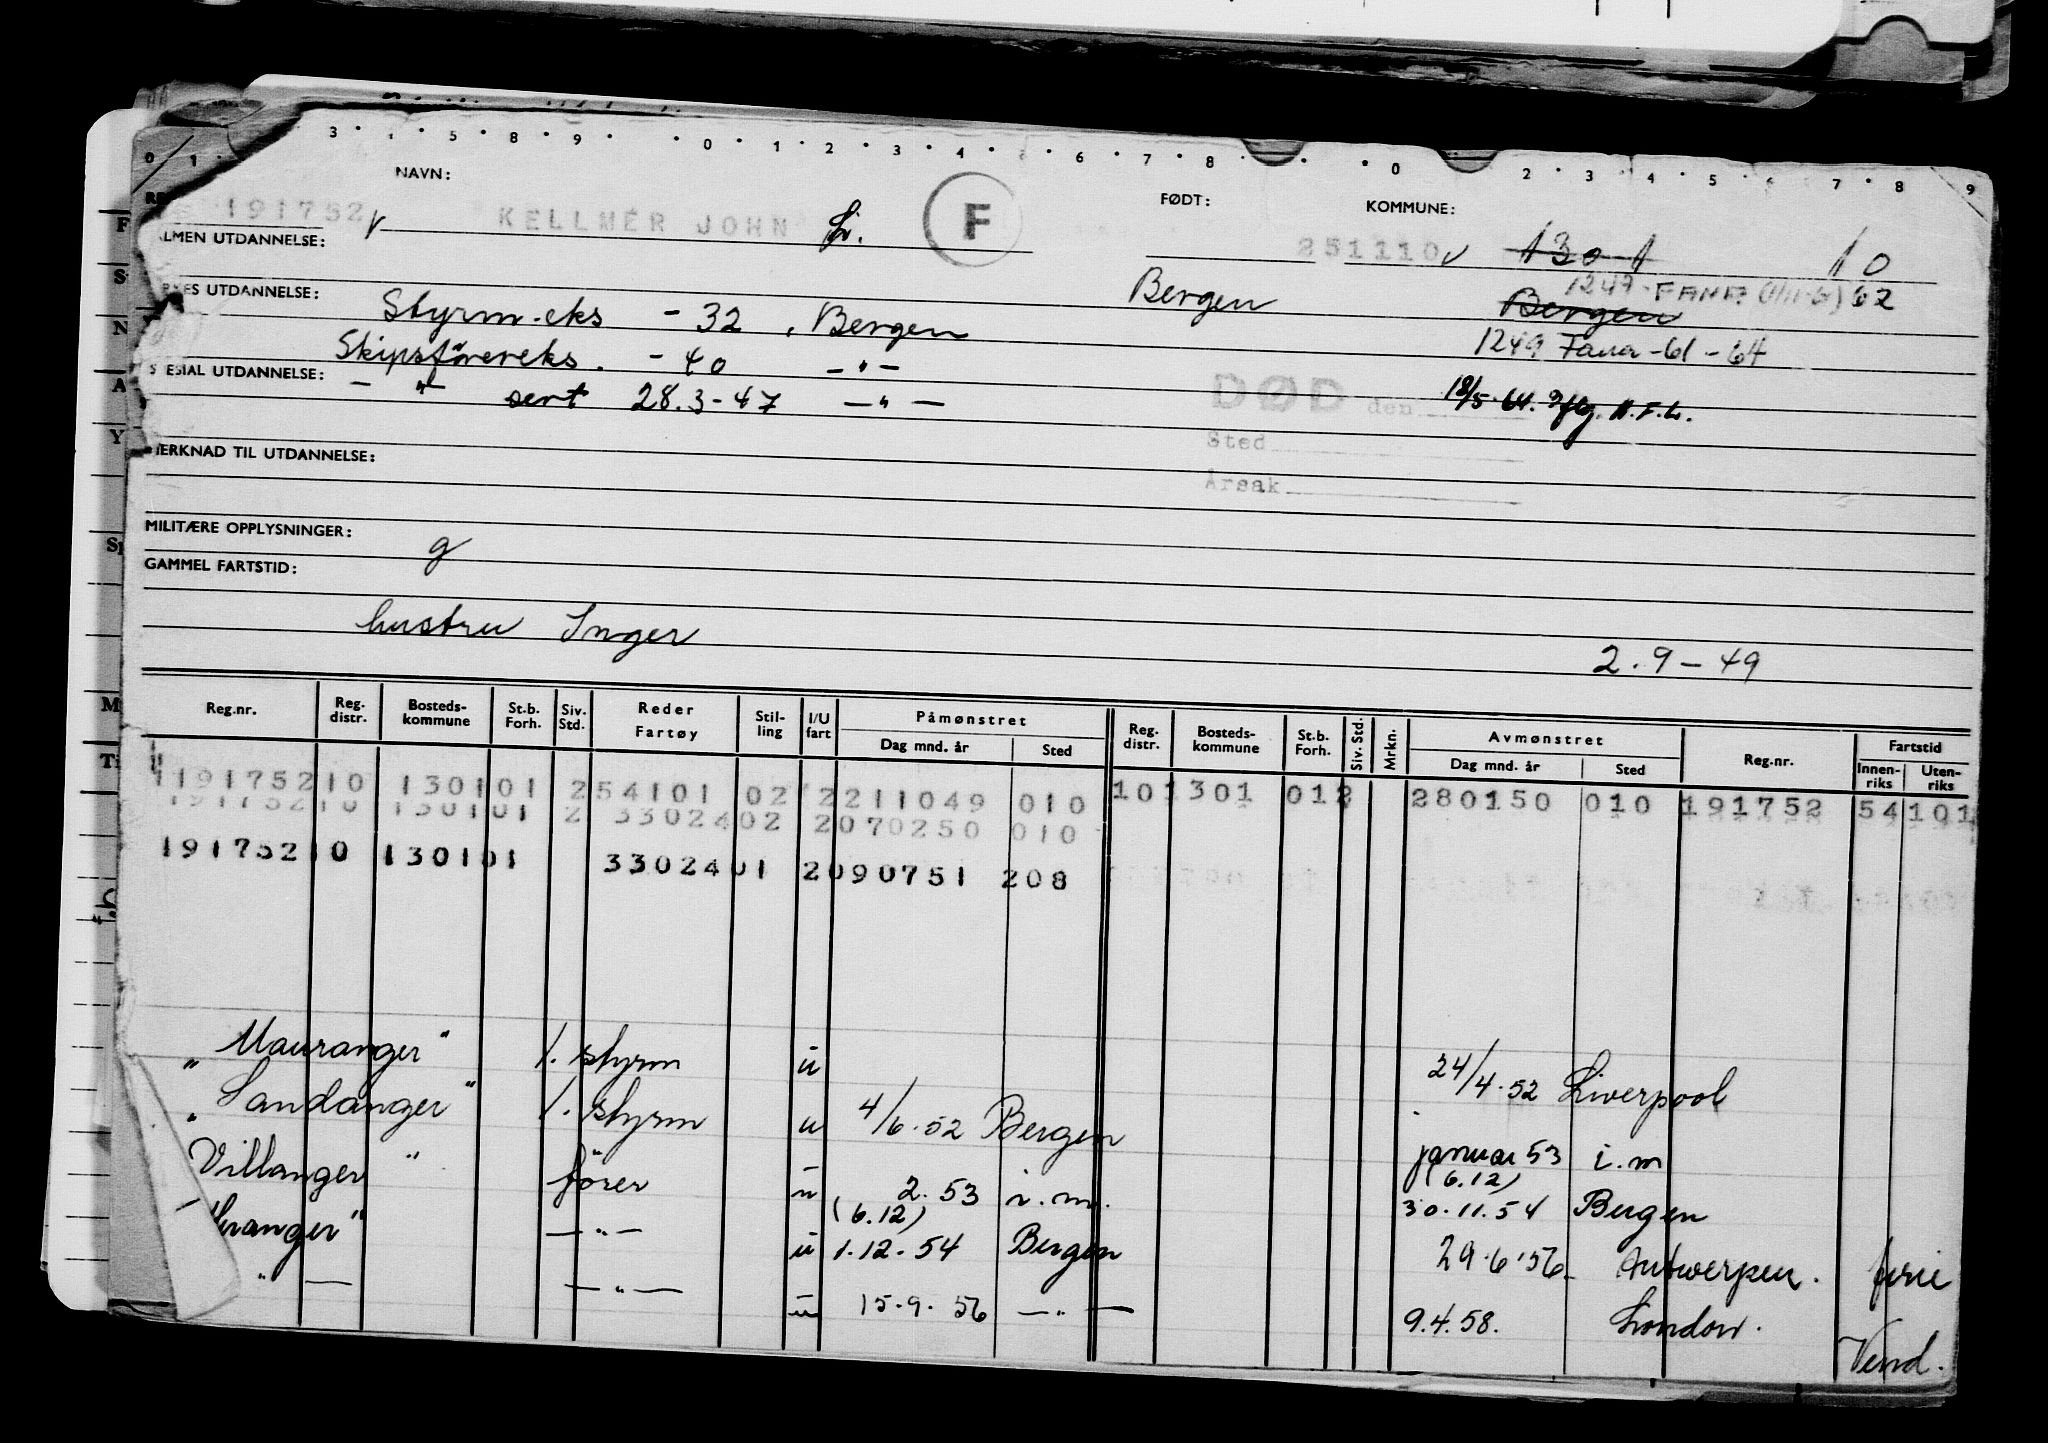 3 · 4 · 5 · 8 · 9 · · 0 · 1 · 2 · 3 · 4 · · 6 · 7 · 8 · · 0 · 2 · 3 · 4 · 5 · 7 · 8 9
0 1
NAVN: FØDT: KOMMUNE:
191752 KELLMER JOHN F 251110 1301 10
LMEN UTDANNELSE:
1247 - FANA 62
KES UTDANNELSE: Styrm.eks - 32, Bergen Bergen Bergen
Skipsförereks. - 40 - " - 1249 Fana - 61 - 64
SPESIAL UTDANNELSE: - " - sert 28.3-47 - " - DØD den 18/5.64.
Sted
MERKNAD TIL UTDANNELSE:
Årsak
MILITÆRE OPPLYSNINGER: g
GAMMEL FARTSTID:
hustru Inger
2.9-49
Reg.nr. Reg. distr. Bosteds-kommune St.b. Forh. Siv. Std. Reder Fartøy Stil-ling I/U fart Påmønstret Dag mnd. år Sted Reg. distr. Bosteds-kommune St.b. Forh. Siv. Std. Mrkn. Avmønstret Dag mnd. år Sted Reg.nr. Fartstid Innen-riks Uten-riks
191752 10 1301 01 2 54101 02 2 211049 010 10 1301 01 2 280150 010 191752 54 101
191752 10 1301 01 2 33024 02 2 070250 010
191752 10 1301 01 33024 01 2 090751 208
"Mauranger" 1. styrm u 24/4.52 Liverpool
"Sandanger" 1. styrm u 4/6.52 Bergen januar 53 i.m
Villanger " förer u 2.53 i.m. (6.12)
(6.12) 30.11.54 Bergen
anger" - " - u 1.12.54 Bergen 29.6.56 Antwerpen. ferie
" — - " - u 15.9.56 - " - 9.4.58. London.
Vend.